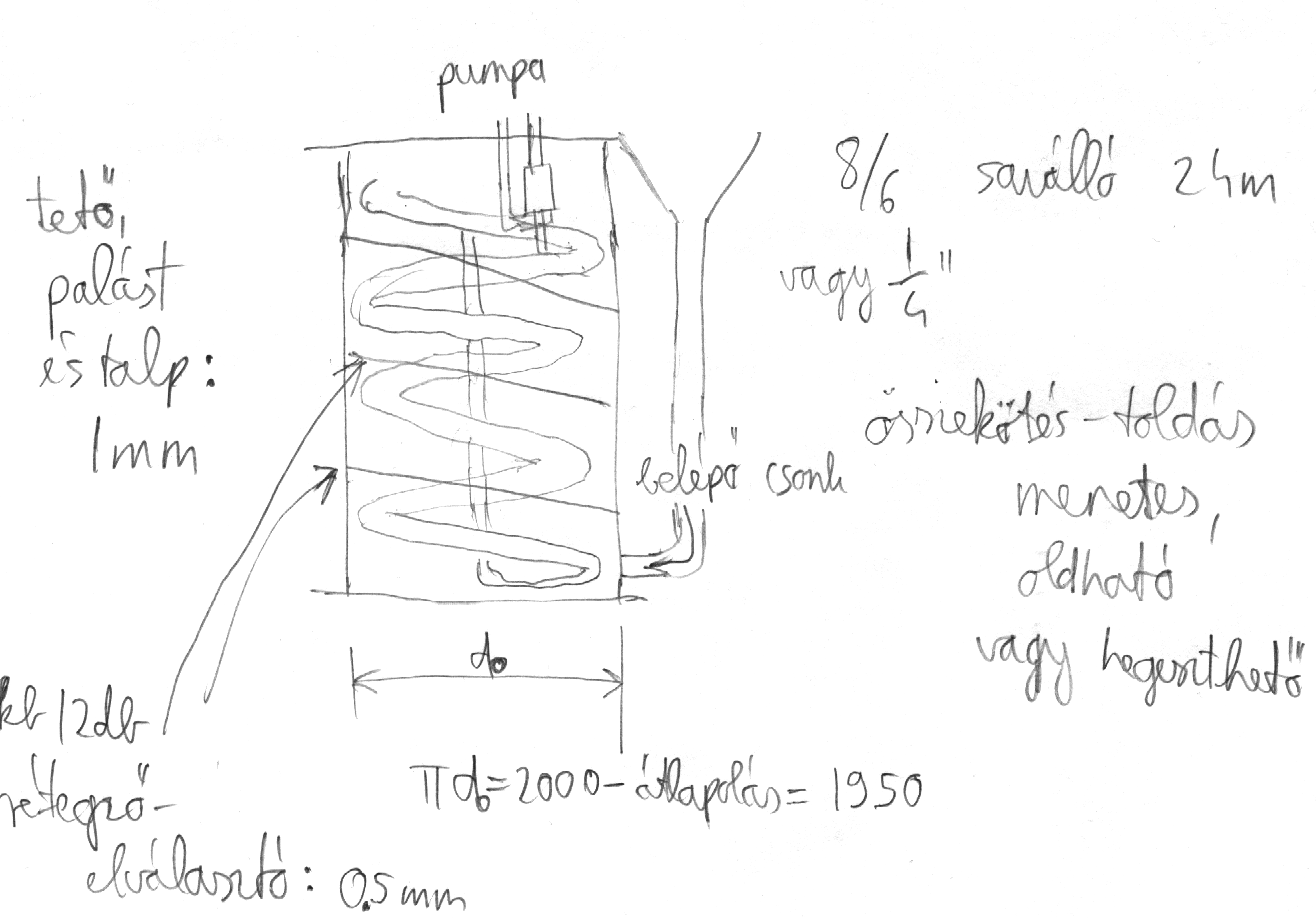 pumpa
tető,
palást
és talp:
1mm
8/6 saválló 24m
vagy 1/4"
összekötés-toldás
menetes,
oldható
vagy hegeszthető
belépő csonk
d₀
kb 12db
rétegző-
elválasztó: 0.5mm
πd₀=2000-átlapolás=1950